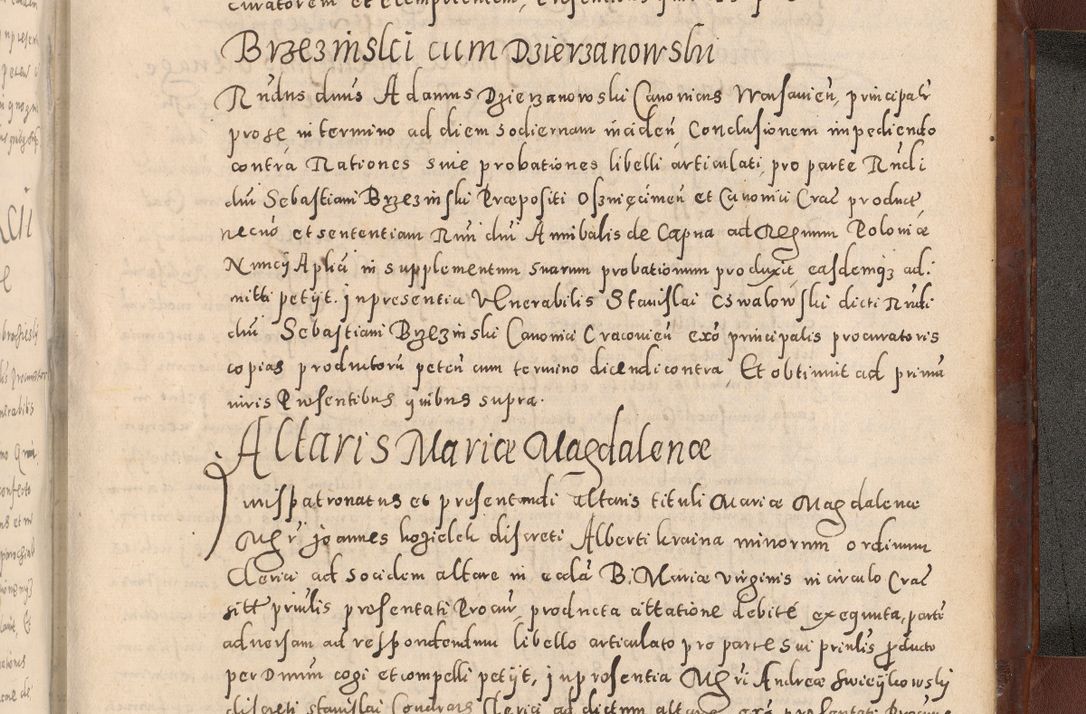 curatorem et
Brzezinski cum Dzierzanowskii
Rndus dnus Adamus Dzierzanowski Canonicus Warsavien̄, principalr̄
pro se in termino ad diem hodiernam inciden̄ Conclusionem impediendo
contra Rationes sive probationes libelli articulati, pro parte Rndi
dni Sebastiani Brzezinski Præpositi Oswięcimen̄ et Canonici Crac̄ product̄
necnō et sententiam Rmi dni Annibalis de Capua ad Regnum Poloniæ
Nuncij Aplici in supplementum suarum probationum produxit, easdemqz ad,
mitti petijt. in presentia Venerabilis Stanislai Cswalowski dicti Rndi
dni Sebastiani Brzezinski Canonici Cracovien̄ exō principalis procuratoris
copias productorū peten̄ cum termino dicendi contra, Et obtinuit ad primā
iuris Præsentibus quibus supra.
Altaris Mariæ Magdalenæ
Iurispatronatus et presentandi altaris tituli Mariæ Magdalenæ
Mgr̄i Joannes kozielek discreti Alberti kraina minorum ordinum
Clerici ad Socidem altare in ecclā B. Mariæ Virginis in circulo Crac̄
sitt̄ priūlis presentati Procur̄, producta cittatione debite exequuta, parte
adversam ad respondendum libello articulato pro parte sui priulis producto
per Dnum cogi et compelli petijt, in præsentia Mgr̄i Andreæ Swieykowskij
discreti Stanislai Clerici ad dictum altare exō